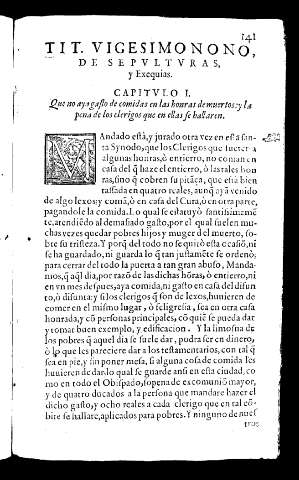 141
TIT. VIGESIMONONO,
DE SEPVLTVRAS,
y Exequias.
CAPITVLO I.
Que no aya gasto de comidas en las honras de muertos: y la
pena de los clerigos que en ellas se hallaren.
MAndado està, y jurado otra vez en esta san-
ta Synodo, que los Clerigos que fueren a
algunas honras, ò entierro, no coman en
casa del q̃ haze el entierro, ò las tales hon
ras, sino q̃ cobren su pitãça, que està bien
tassada en quatro reales, aunq̃ ayã venido
de algo lexos: y comã, ò en casa del Cura, ò en otra parte,
pagandole la comida. Lo qual se estatuyò santissimamẽ
te, atendiẽdo al demasiado gasto, por el qual suelen mu-
chas vezes quedar pobres hijos y muger del muerto, so-
bre su tristeza. Y porq̃ del todo no se quitò esta ocasiõ, ni
se ha guardado, ni guarda lo q̃ tan justamẽte se ordenò;
para cerrar del todo la puerta a tan gran abuso, Manda-
mos, q̃ aql̃ dia, por razõ de las dichas hõras, ò entierro, ni
en vn mes despues, aya comida, ni gasto en casa del difun
to, ò difunta: y si los clerigos q̃ son de lexos, huuieren de
comer en el mismo lugar, ò feligresia, sea en otra casa
honrada, y cõ personas principales, cõ quiẽ se pueda dar
y tomar buen exemplo, y edificacion. Y la limosna de
los pobres q̃ aquel dia se suele dar, podra ser en dinero,
ò lo que les pareciere dar a los testamentarios, con tal q̃
sea en pie, y sin poner mesa, si alguna cosa de comida les
huuieren de dar: lo qual se guarde ansi en esta ciudad, co
mo en todo el Obispado, sopena de excomuniõ mayor,
y de quatro ducados a la persona que mandare hazer el
dicho gasto, y ocho reales a cada clerigo que en tal cõ-
bite se hallare, aplicados para pobres. Y ninguno de nues